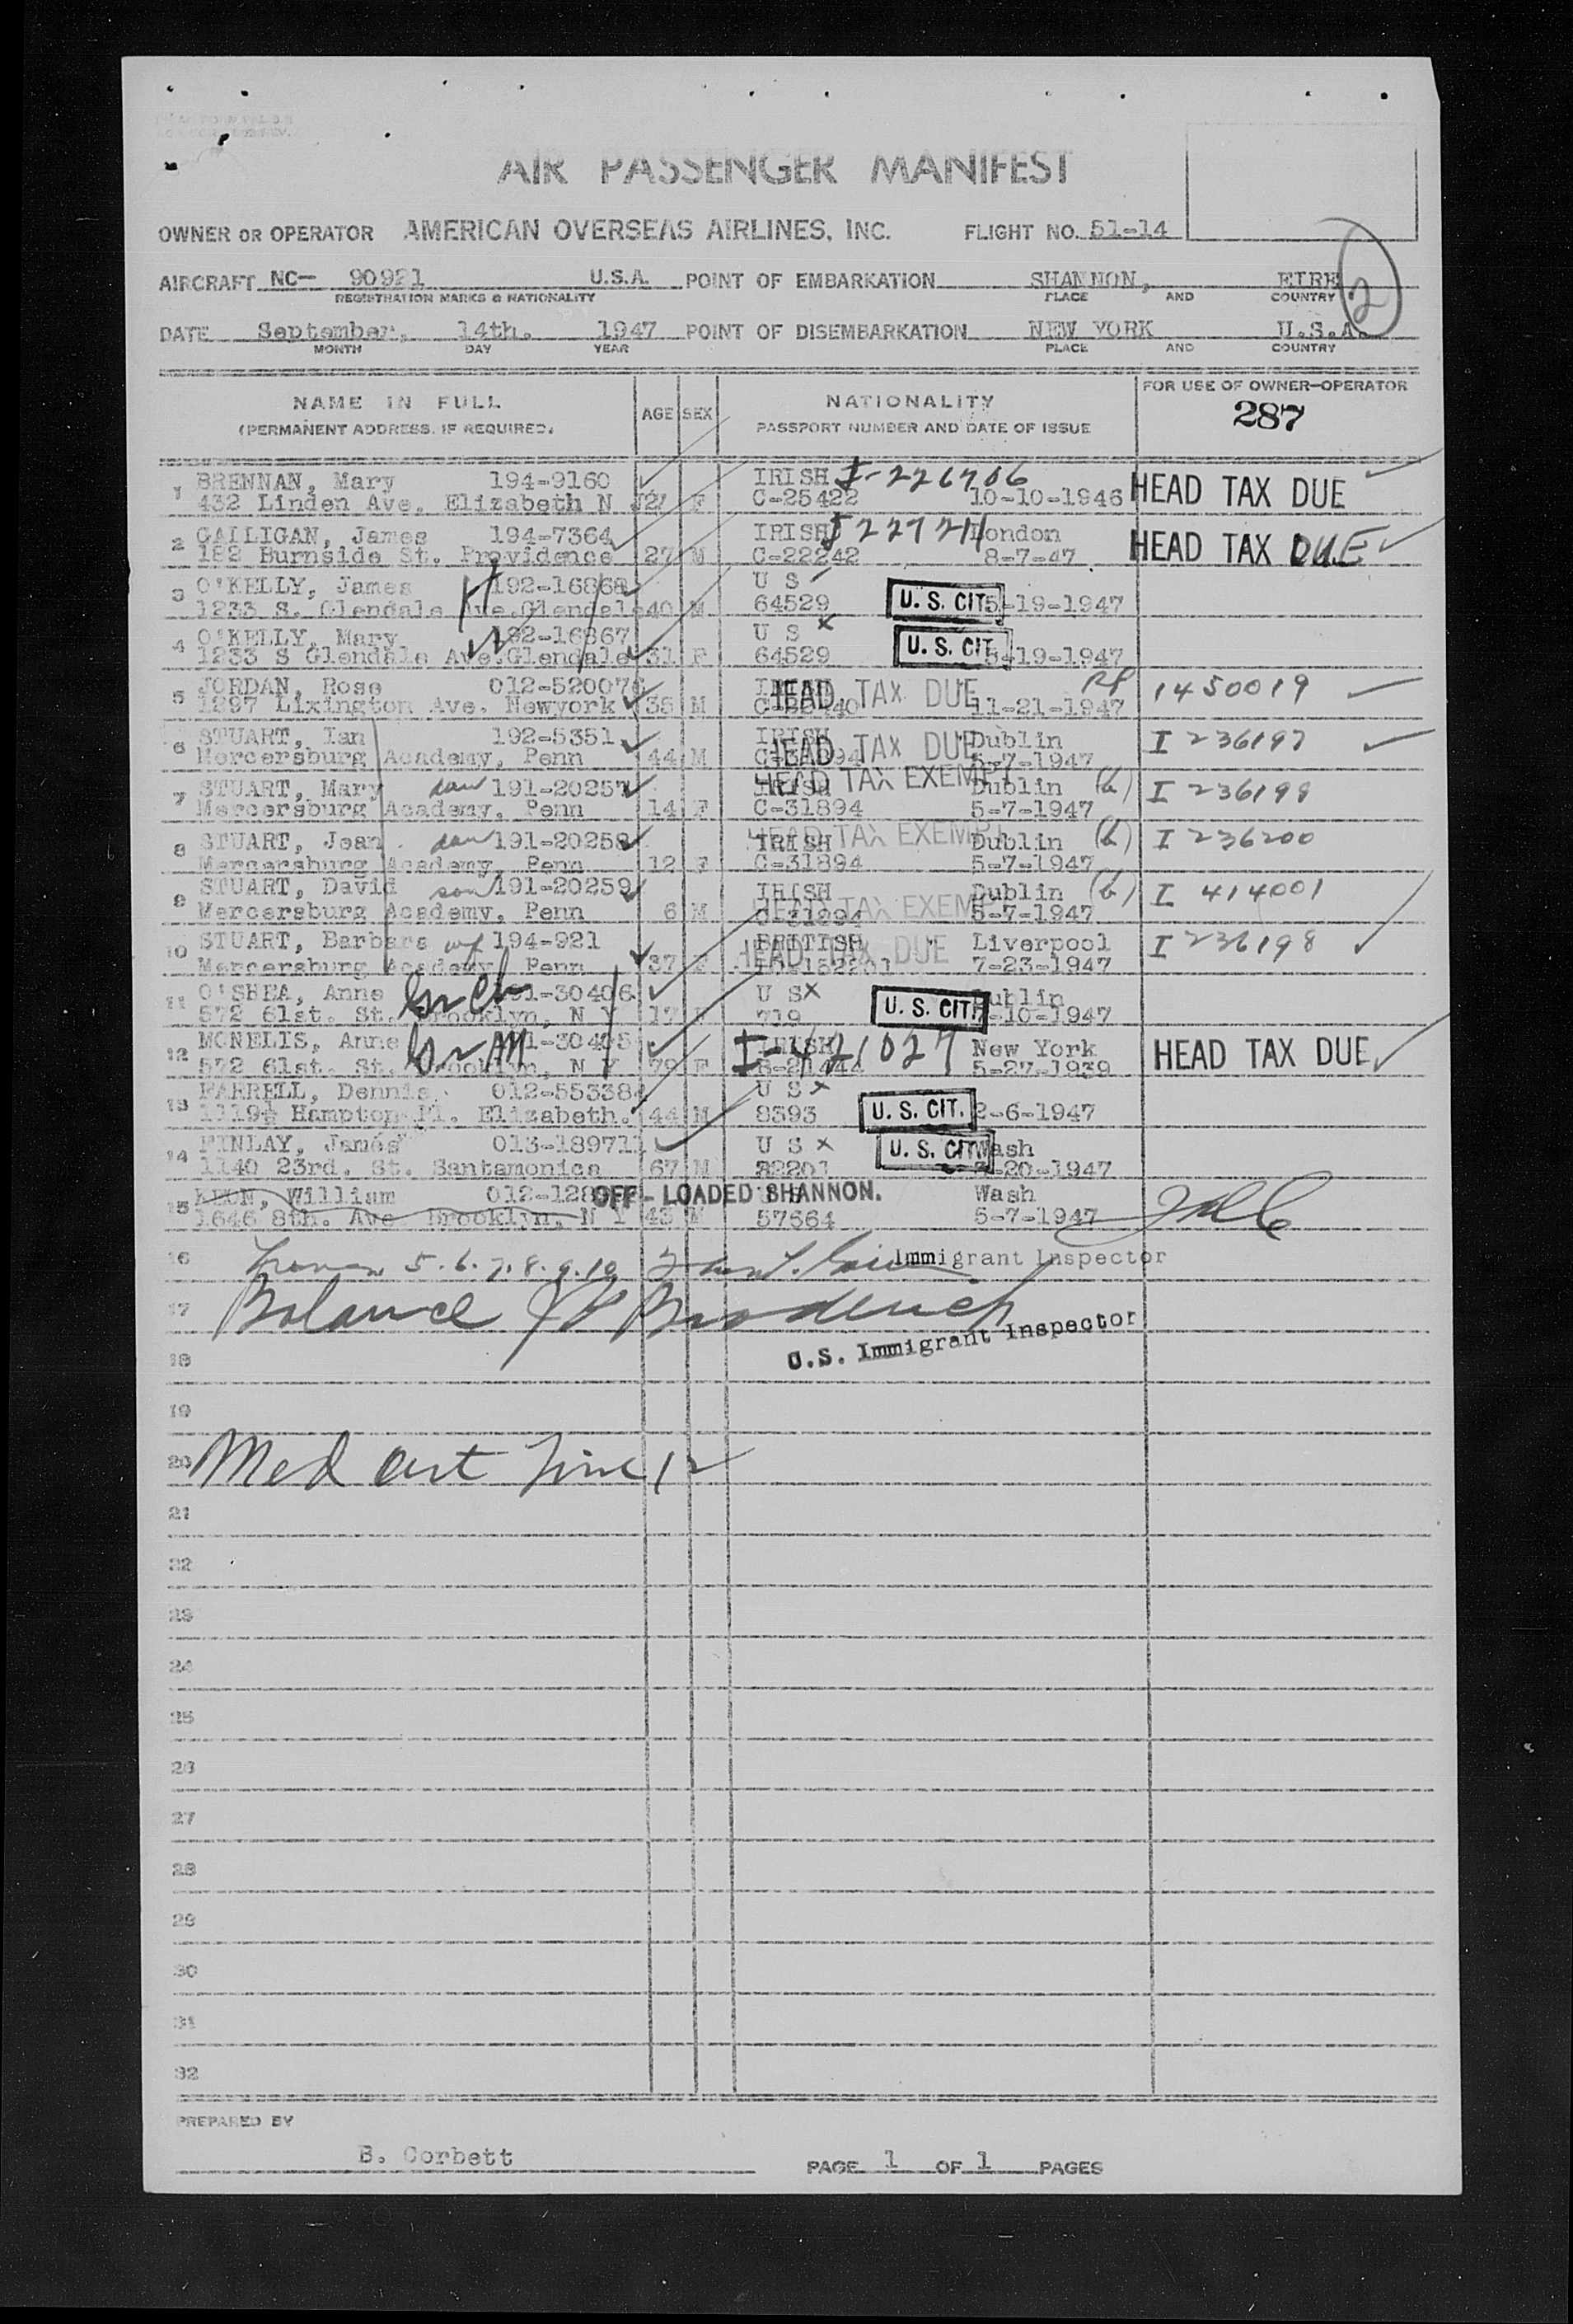 AIR PASSENGER MANIFEST
OWNER OR OPERATOR AMERICAN OVERSEAS AIRLINES, INC. FLIGHT NO. 51-14
AIRCRAFT NC- 90921 U.S.A. POINT OF EMBARKATION SHANNON, EIRE
REGISTRATION MARKS & NATIONALITY PLACE AND COUNTRY
2
DATE September, 14th. 1947 POINT OF DISEMBARKATION NEW YORK U.S.A.
MONTH DAY YEAR PLACE AND COUNTRY
NAME IN FULL AGE SEX NATIONALITY FOR USE OF OWNER-OPERATOR
(PERMANENT ADDRESS, IF REQUIRED) PASSPORT NUMBER AND DATE OF ISSUE 287
1 BRENNAN, Mary 194-9160 IRISH I-226706 HEAD TAX DUE
432 Linden Ave. Elizabeth N J F C-25422 10-10-1946
2 GALLIGAN, James 194-7364 IRISH London HEAD TAX DUE
182 Burnside St. Providence 27 M C-22242 8-7-47
3 O'KELLY, James 192-16868 U S
1233 S. Glendale Ave. Glendale 40 M 64529 U. S. CIT. 5-19-1947
4 O'KELLY, Mary 192-16867 U S x
1233 S Glendale Ave. Glendale 31 F 64529 U. S. CIT. 5-19-1947
5 JORDAN, Rose HEAD TAX DUE 1450019
1297 Lixington Ave. Newyork 35 M 11-21-1947
6 STUART, Ian 192-5351 IRISH HEAD TAX DUE Dublin I 236197
Mercersburg Academy, Penn 44 M 5-7-1947
7 STUART, Mary dau 191-20257 HEAD TAX EXEMPT Dublin I 236199
Mercersburg Academy, Penn 14 F C-31894 5-7-1947
8 STUART, Jean dau 191-20258 IRISH HEAD TAX EXEMPT Dublin I 236200
Mercersburg Academy, Penn 12 F C-31894 5-7-1947
9 STUART, David son 191-20259 IRISH HEAD TAX EXEMPT Dublin I 414001
Mercersburg Academy, Penn 6 M C-31894 5-7-1947
10 STUART, Barbara wf 194-921 BRITISH HEAD TAX DUE Liverpool I 236198
Mercersburg Academy, Penn 37 F 7-23-1947
11 O'SHEA, Anne Gr Ch 191-30406 U S x Dublin
572 61st. St. Brooklyn, N Y 17 F 719 U. S. CIT. 10-1947
12 MCNELIS, Anne Gr M IRISH I-421027 New York HEAD TAX DUE
572 61st. St. Brooklyn, N Y 79 F 5-27-1939
13 FARRELL, Dennis U S x
1119½ Hampton Pl. Elizabeth. 44 M 8393 U. S. CIT. 2-6-1947
14 FINLAY, James 013-189711 U S x U. S. CIT. Wash
1140 23rd. St. Santamonica 67 M 20-1947
15 KEON, William OFF-LOADED SHANNON. Wash
1646 8th. Ave Brooklyn, N Y 43 M 57664 5-7-1947
16 5.6.7.8.9.10 Immigrant Inspector
17 Balance
18 U.S. Immigrant Inspector
19
20 Med
21
22
23
24
25
26
27
28
29
30
31
32
PREPARED BY
B. Corbett PAGE 1 OF 1 PAGES